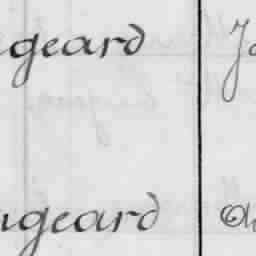 geard Jo
ngeard